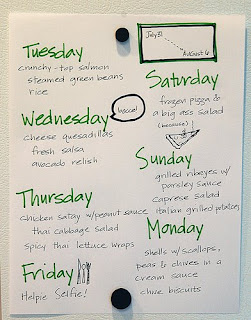 July 31
August 6
Tuesday
crunchy-top salmon
steamed green beans
rice
Wednesday
soccer!
cheese quesadillas
fresh salsa
avocado relish
Thursday
chicken satay w/peanut sauce
thai cabbage salad
spicy thai lettuce wraps
Friday
Helpie Selfie!
Saturday
frozen pizza &
a big ass salad
(because)
Sunday
grilled ribeyes w/
parsley sauce
caprese salad
italian grilled potatoes
Monday
shells w/scallops,
peas & chives in a
cream sauce
chive biscuits